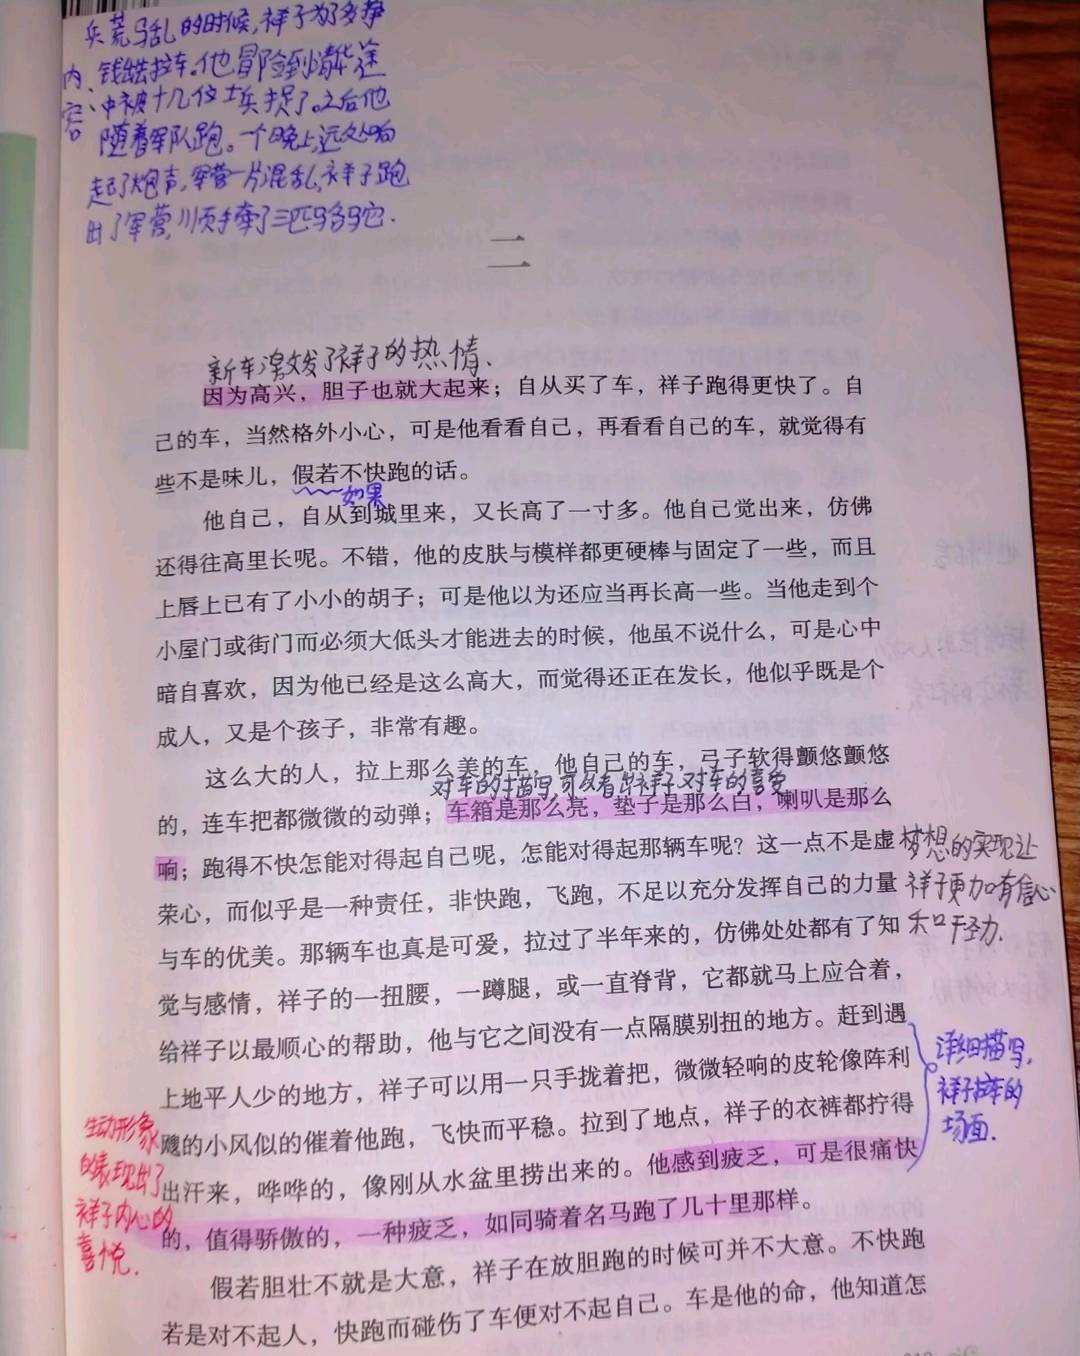 兵荒马乱的时候,祥子为了多挣
内、钱出去拉车。他冒险到清华途
容、中被十几位士兵捉了。之后他
随着军队跑。一个晚上,远处响
起了炮声,军营一片混乱,祥子跑
出了军营,顺手牵了三匹骆驼.
二
新车激发了祥子的热情.
因为高兴，胆子也就大起来；自从买了车，祥子跑得更快了。自
己的车，当然格外小心，可是他看看自己，再看看自己的车，就觉得有
些不是味儿，假若不快跑的话。
如果
他自己，自从到城里来，又长高了一寸多。他自己觉出来，仿佛
还得往高里长呢。不错，他的皮肤与模样都更硬棒与固定了一些，而且
上唇上已有了小小的胡子；可是他以为还应当再长高一些。当他走到个
小屋门或街门而必须大低头才能进去的时候，他虽不说什么，可是心中
暗自喜欢，因为他已经是这么高大，而觉得还正在发长，他似乎既是个
成人，又是个孩子，非常有趣。
这么大的人，拉上那么美的车，他自己的车，弓子软得颤悠颤悠
对车的描写,可以看出祥子对车的喜爱
的，连车把都微微的动弹；车箱是那么亮，垫子是那么白，喇叭是那么
响；跑得不快怎能对得起自己呢，怎能对得起那辆车呢？这一点不是虚
荣心，而似乎是一种责任，非快跑，飞跑，不足以充分发挥自己的力量
与车的优美。那辆车也真是可爱，拉过了半年来的，仿佛处处都有了知
觉与感情，祥子的一扭腰，一蹲腿，或一直脊背，它都就马上应合着，
给祥子以最顺心的帮助，他与它之间没有一点隔膜别扭的地方。赶到遇
上地平人少的地方，祥子可以用一只手拢着把，微微轻响的皮轮像阵利
飕的小风似的催着他跑，飞快而平稳。拉到了地点，祥子的衣裤都拧得
出汗来，哗哗的，像刚从水盆里捞出来的。他感到疲乏，可是很痛快
的，值得骄傲的，一种疲乏，如同骑着名马跑了几十里那样。
假若胆壮不就是大意，祥子在放胆跑的时候可并不大意。不快跑
若是对不起人，快跑而碰伤了车便对不起自己。车是他的命，他知道怎
梦想的实现让
祥子更加有信心
和干劲.
详细描写,
祥子拉车的
场面.
生动形象
的表现出了
祥子内心的
喜悦.